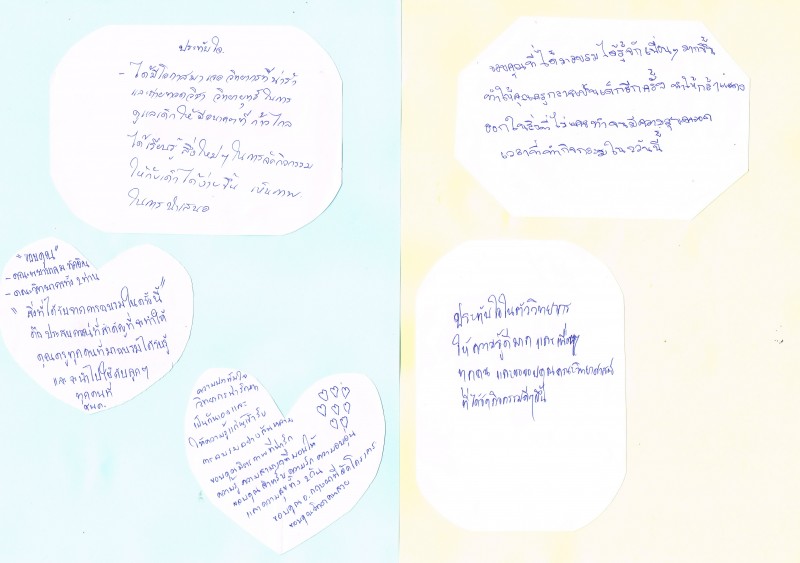 ประทับใจ
- ได้มีโอกาสมาเจอ วิทยากรที่น่ารัก
และถ่ายทอดวิชา วิทยายุทธ์ ในการ
ดูแลเด็กให้มีอนาคตที่ก้าวไกล
ได้เรียนรู้ สิ่งใหม่ๆ ในการจัดกิจกรรม
ให้กับเด็กได้ง่ายขึ้น เป็นภาพ
ในการนำเสนอ
"ขอบคุณ"
- คณะวิทยากรทั้ง 2 ท่าน
"สิ่งที่ได้รับจากการอบรมในครั้งนี้"
คือประสบการณ์ที่สำคัญที่จะทำให้
คุณครูทุกคนที่มาอบรมได้รับรู้
และจะนำไปใช้กับลูกๆ
ทุกคนที่
ศพด.
ความประทับใจ
วิทยากรน่ารักมาก
เป็นกันเองและ
ให้ความรู้แก่ผู้เข้ารับ
การอบรมอย่าง
ขอบคุณมิตรภาพที่น่ารัก
ความรู้ ความสามารถที่มอบให้
ขอบคุณสำหรับความรัก ความอบอุ่น
และความสุขทั้ง 2 วัน
ขอบคุณ ที่จัดโครงการ
ขอบคุณจากใจ
ขอบคุณที่ได้มาอบรม ได้รู้จักเพื่อนๆ มากขึ้น
ทำให้คุณครูกลายเป็นเด็กอีกครั้ง ทำให้กล้า
ออกในสิ่งที่ไม่เคยทำ จนมีความสุขตลอด
เวลาที่ทำกิจกรรมใน 2 วันนี้
ประทับใจในตัววิทยากร
ให้ความรู้ดีมาก และเพื่อนๆ
ทุกคน และขอขอบคุณคณะวิทยากร
ที่ได้จัดกิจกรรมดีๆนี้